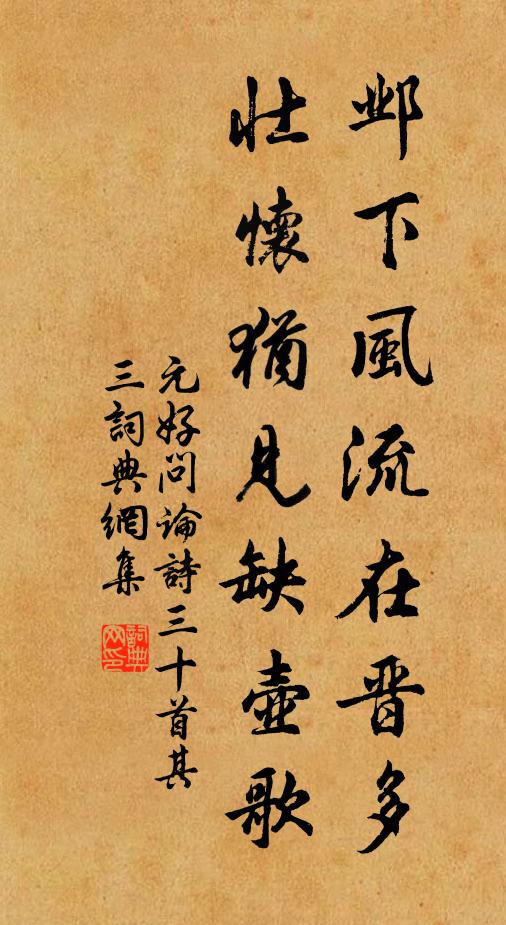 邺下風流在晋多
壮懷猶見缺壺歌
元好问論詩三十首其
三詞典網集
詞典网印